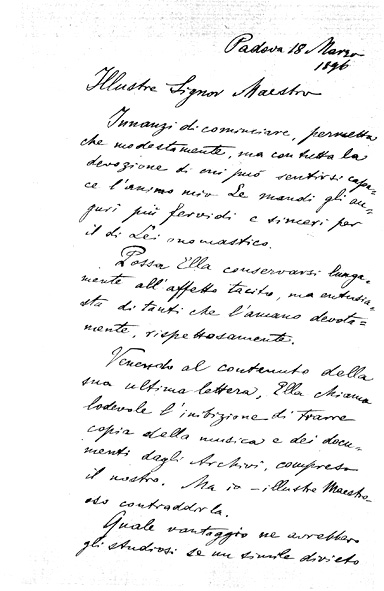 Padova 18 Marzo
1896
Illustre Signor Maestro
Innanzi di cominciare, permetta
che modestamente, ma con tutta la
devozione di cui può sentirsi capa-
ce l'animo mio Le mandi gli au-
guri più fervidi e sinceri per
il di Lei onomastico.
Possa Ella conservarsi lunga-
mente all'affetto tacito, ma entusia-
sta di tanti che l'amano devota-
mente, rispettosamente.
Venendo al contenuto della
sua ultima lettera, Ella chiama
lodevole l'inibizione di trarre
copia della musica e dei docu-
menti dagli Archivi, compreso
il nostro. Ma io - illustre Maestro -
oso contraddirla.
Quale vantaggio ne avrebbero
gli studiosi se un simile divieto